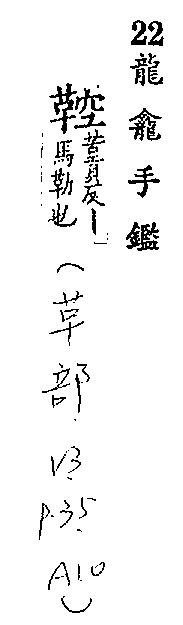 22龍龕手鑑
鞚
苦貢反丨
馬勒也
(草部. V3. p.35. A10)